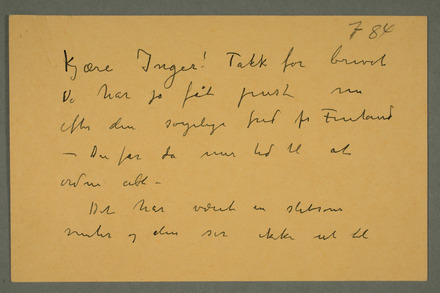 7 84
Kjære Inger! Takk for brevet
De har jo fåt frist nu
efter den sørgelige fred fr Finland
– De får da mer tid til at
ordne alt –
Det har været en slitsom
vinter og den ser ikke ut til